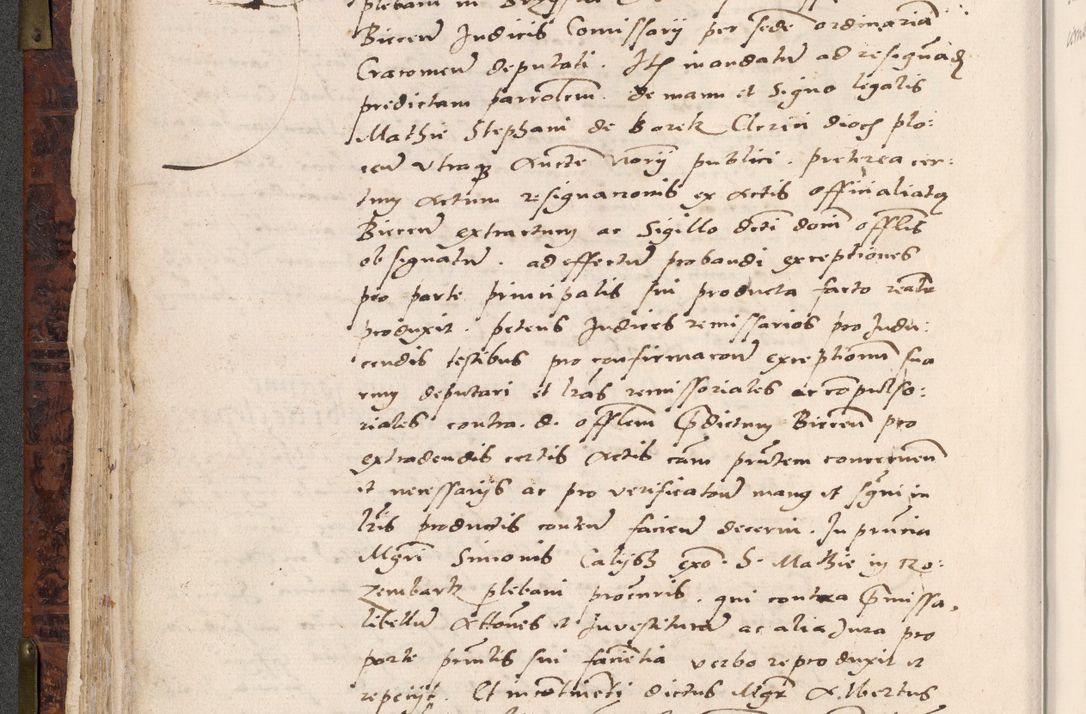 plebani in
Biecen Judicis Comissarij per sede ordinaria
Cracovien deputati. Ite mandatu ad resignad
predictam parrochem. de manu et Signo legalis
Mathie Stephani de Borek Clerici dioc plo:
cen utraq Aucte Norij publici. preterea cer:
tum Actum resignacionis ex Actis officialiatq
Biecen extractum ac Sigillo dicti domi offlis
obsignatu. ad effectu probandi exceptiones
pro parte principalis sui producta facto realr
produxit. petens Judices remissarios pro Indu:
cendis testibus pro confirmacoe exceptionu sua
rum deputari et lras remissoriales ac compulso:
riales contra. d. offlem pdictum Biecen pro
extradendis certis Actis cam pntem concernen
et necessarijs ac pro verificatoe manq et signi in
lris productis conten facien decerni. In pncia
Mgri Simonis Calijsz exo. S. Mathie in Ro:
zembark plebani procuris. qui contra pmissa,
libellu Actiones et Investituram ac alia Jura pro
parte pntis sui facientia verbo reproduxit et
repetijt. Et incontinenti dictus Mgr Albertus